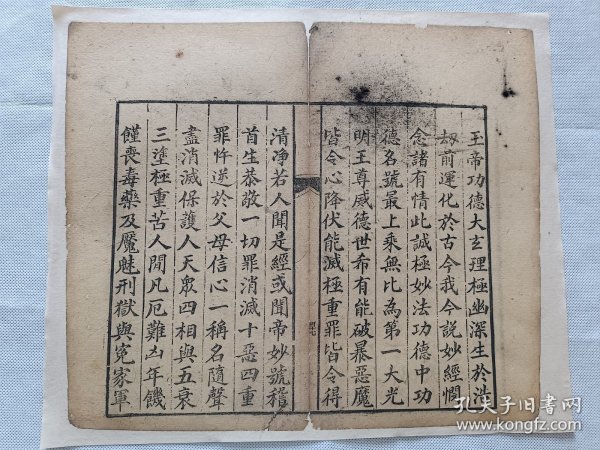 玉帝功德大玄理極幽深生於浩
刼前運化於古今我今說妙經憫
念諸有情此誠極妙法功德中功
德名號最上乘無比為第一大光
明王尊威德世希有能破暴惡魔
皆令心降伏能滅極重罪皆令得
清净若人聞是經或聞帝妙號稽
首生恭敬一切罪消滅十惡四重
罪忤逆於父母信心一稱名隨聲
盡消滅保護人天衆四相與五衰
三塗極重苦人間凡厄難凶年饑
饉喪毒藥及魘魅刑獄與冤家軍
孔夫子旧書网
www.kongfz.com